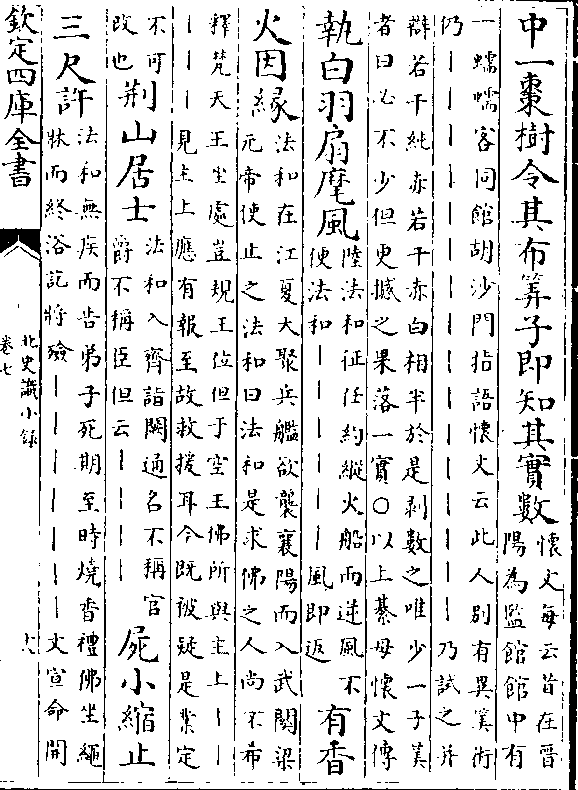 中一棗樹令其布筭子即知其實數
懷文每云昔在晉
陽為監館館中有
一蠕蠕客同館胡沙門指語懷文云此人別有異筭術
仍｜｜｜｜｜｜｜｜｜｜｜｜｜｜乃試之并
辯若干純赤若干赤白相半於是剥數之唯少一子筭
者曰必不少但更撼之果落一實○以上綦母懷文傳
執白羽扇麾風
陸法和征任約縱火船而逆風不
便法和｜｜｜｜｜｜風即返
有香
火因緣
法和在江夏大聚兵艦欲襲襄陽而入武關梁
元帝使止之法和曰法和是求佛之人尚不希
釋梵天王坐處豈規王位但于空王佛所與主上｜｜
｜｜｜見主上應有報至故救援耳今既被疑是業定
不可
改也
荆山居士
法和入齊詣闕通名不稱官
爵不稱臣但云｜｜｜｜
屍小縮止
三尺許
法和無疾而告弟子死期至時燒香禮佛坐繩
牀而終浴訖將殮｜｜｜｜｜｜｜文宣命開
欽定四庫全書
北史識小錄
卷七